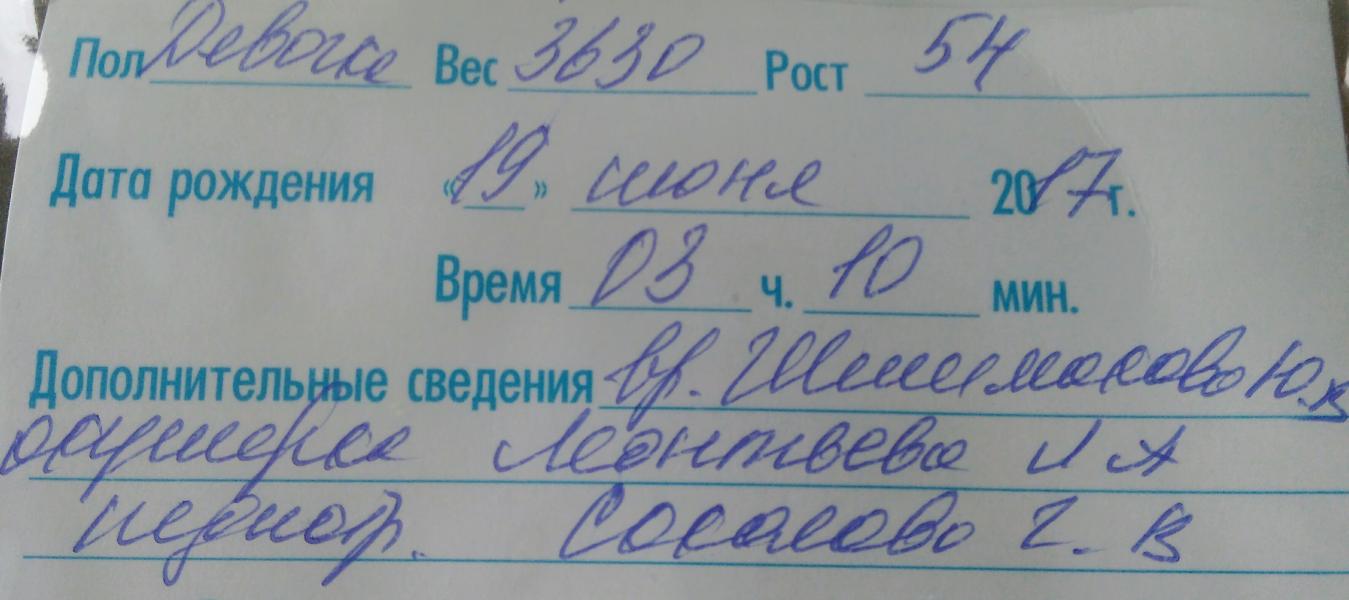 Пол Девочка Вес 3630 Рост 54
Дата рождения «19» июня 2017г.
Время 03 ч. 10 мин.
Дополнительные сведения вр. Ю.В
акушерка Леонтьева Л А
педиатр. Соколова Г. В